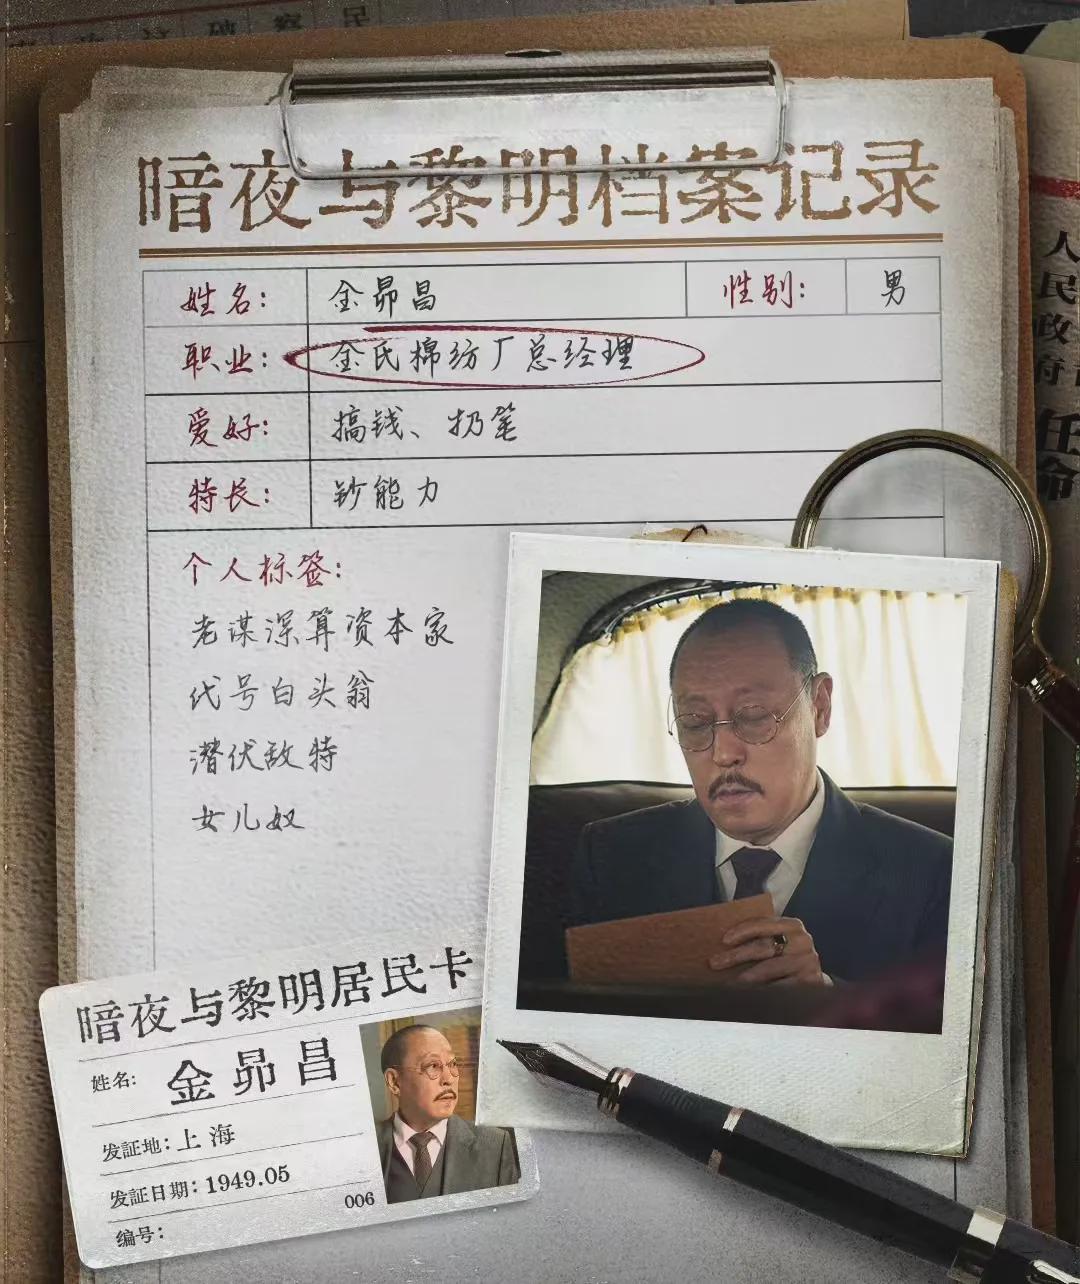 暗夜与黎明档案记录
姓名： 金昴昌 性别： 男
职业： 金氏棉纺厂总经理
爱好： 搞钱、扔笔
特长： 钞能力
个人标签：
老谋深算资本家
代号白头翁
潜伏敌特
女儿奴
暗夜与黎明居民卡
姓名： 金昴昌
发証地：上海
发証日期：1949.05
编号： 006
人民政府
任命